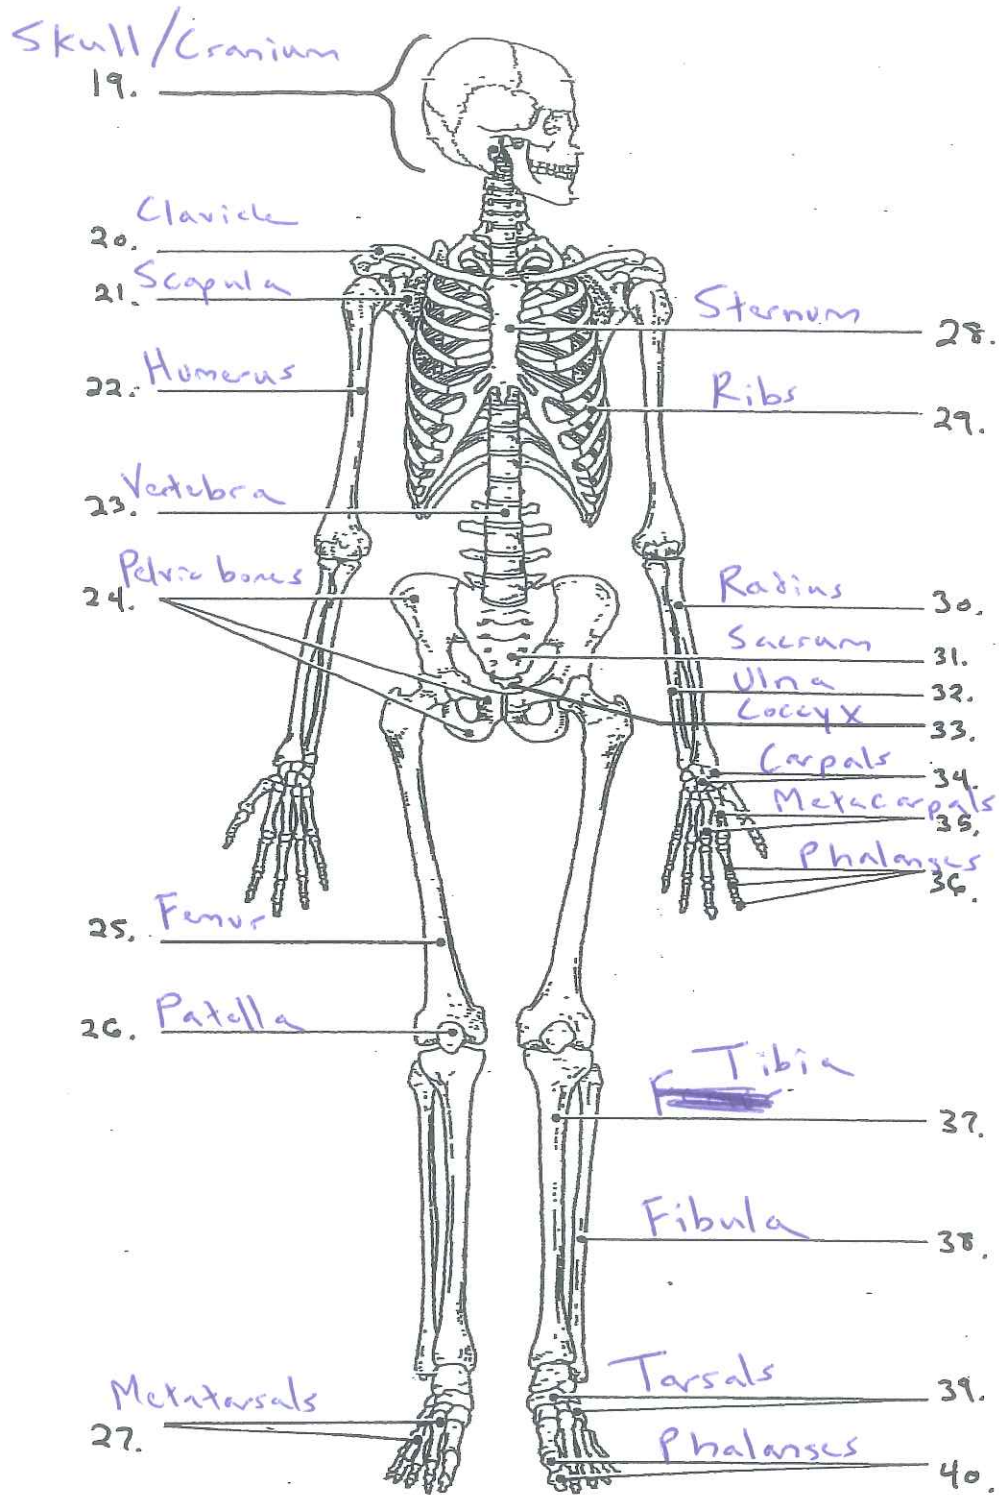 Skull/Cranium
19.
Clavicle
20.
Scapula
21.
Humerus
22.
Vertebra
23.
Pelvic bones
24.
Femur
25.
Patella
26.
Metatarsals
27.
Sternum
28.
Ribs
29.
Radius
30.
Sacrum
31.
Ulna
32.
Coccyx
33.
Carpals
34.
Metacarpals
35.
Phalanges
36.
Tibia
37.
Fibula
38.
Tarsals
39.
Phalanges
40.